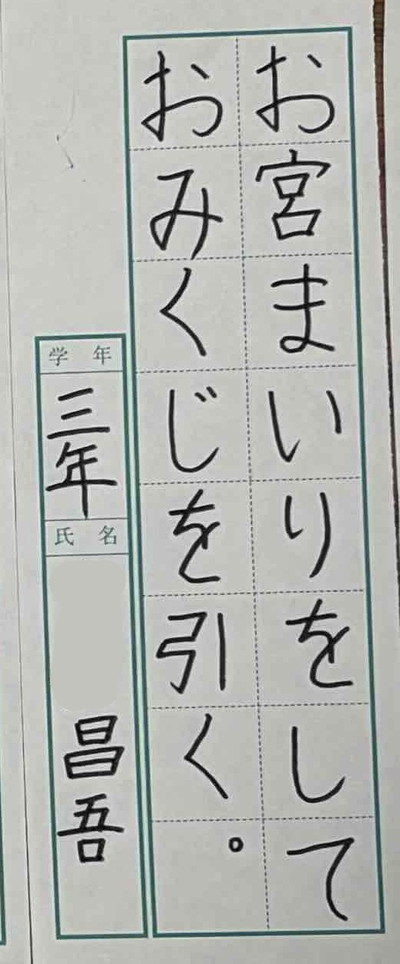 お宮まいりをして
おみくじを引く。
学年
三年
氏名
昌吾